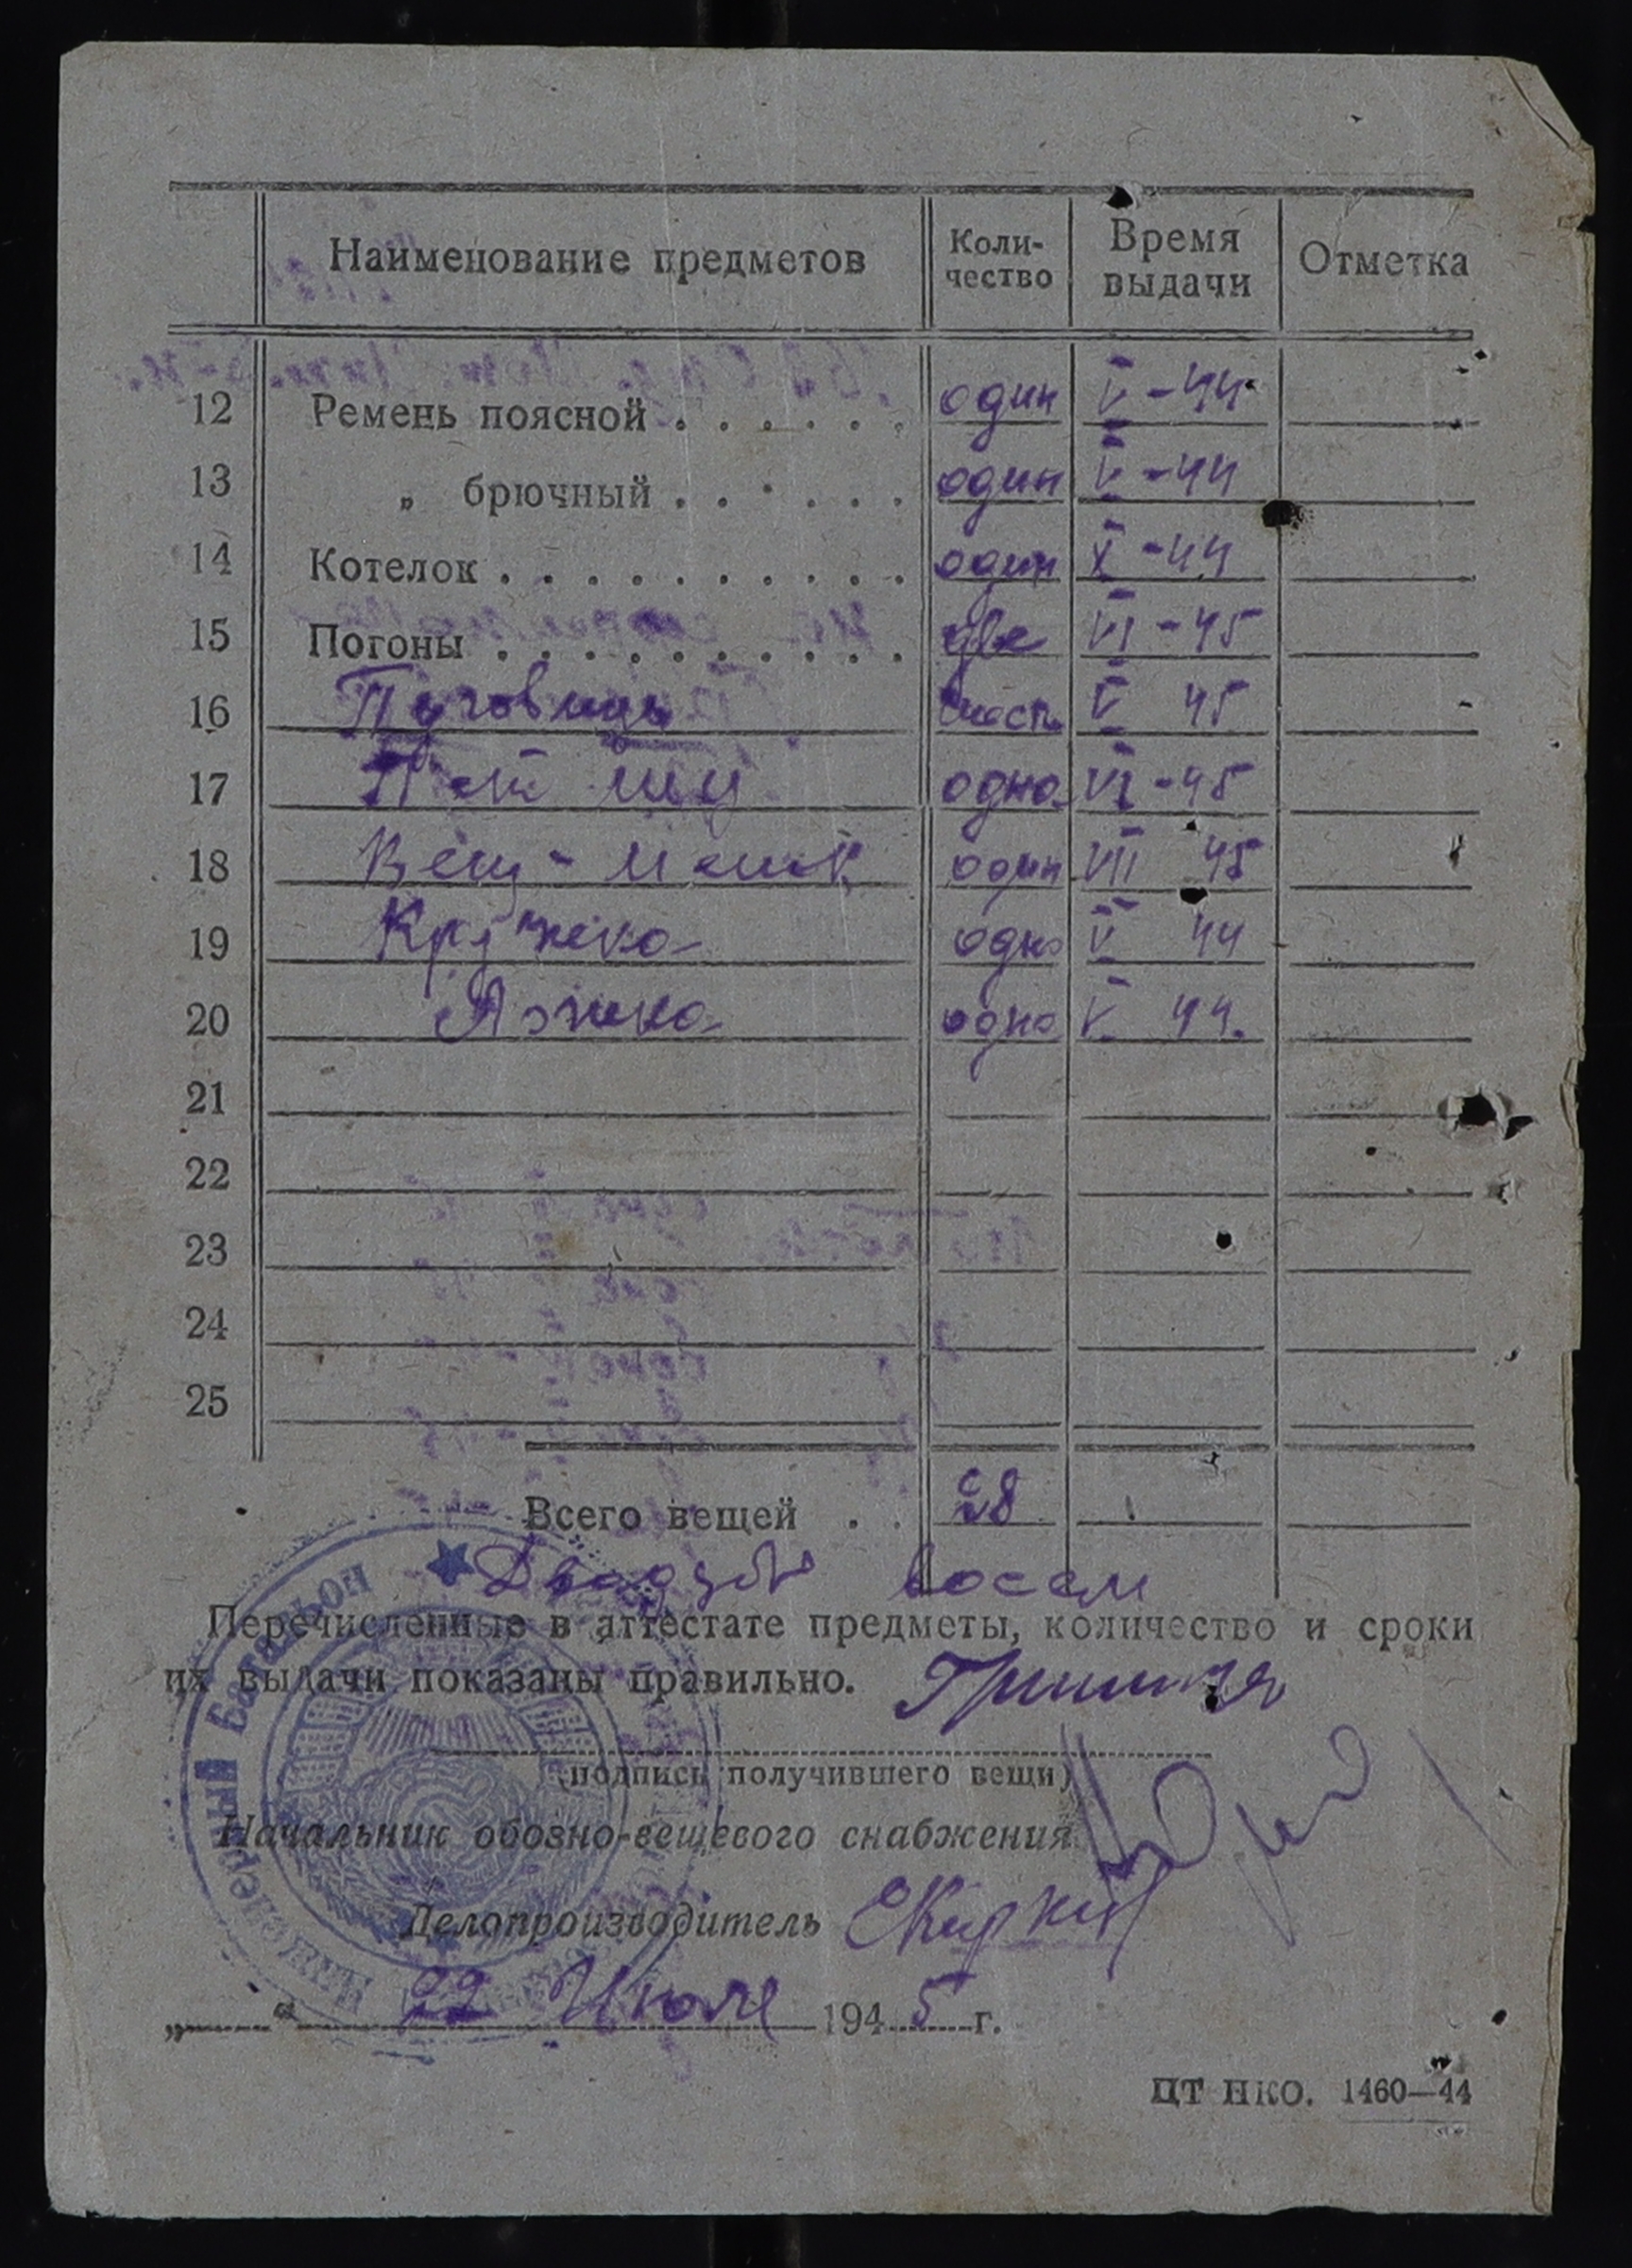 Наименование предметов Коли-чество Время выдачи Отметка
12 Ремень поясной . . . . . . один V - 44
13 „ брючный . . . . . . один V - 44
14 Котелок . . . . . . . . . . один X - 44
15 Погоны . . . . . . . . . . две VI - 45
16 Пуговицы шесть V 45
17 одно VI - 45
18 Вещ - мешок один VII 45
19 Кружка одна V 44
20 Ложка одна V 44.
21
22
23
24
25
Всего вещей . . 28
Двадцать восем
Перечисленные в аттестате предметы, количество и сроки
их выдачи показаны правильно.
(подпись получившего вещи)
Начальник обозно-вещевого снабжения
Делопроизводитель
„ “ 22 Июля 1945 г.
ЦТ НКО. 1460—44
Инженерный Батальон